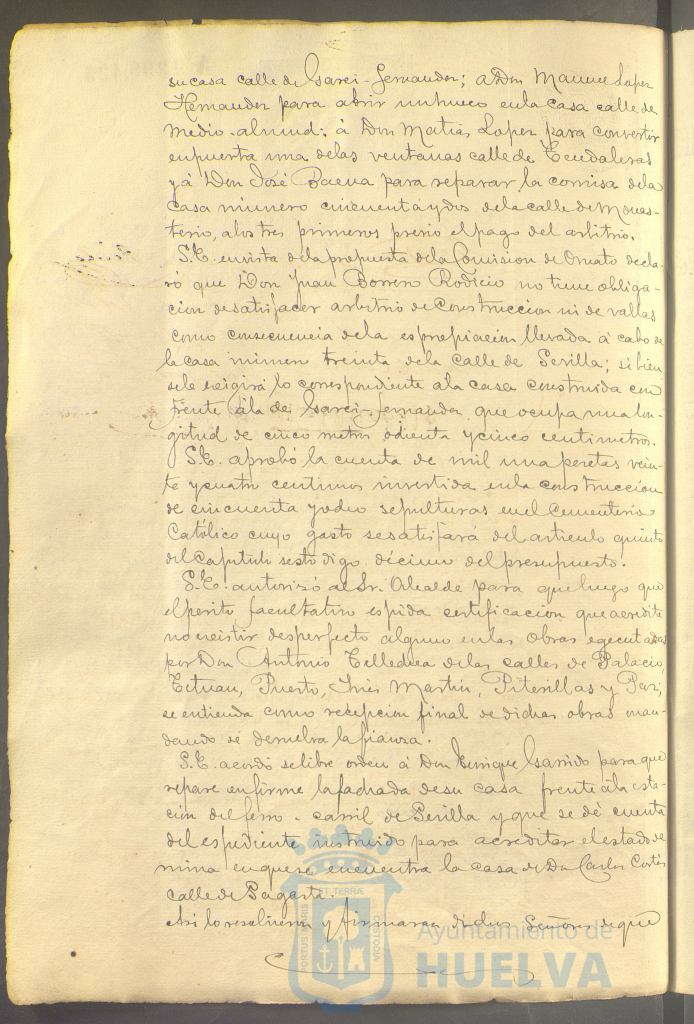 su casa calle de Garci-Fernandez; a Don Manuel Lopez
Hernandez para abrir un hueco en la casa calle de
Medio-almud; á Don Matias Lopez para convertir
en puerta una de las ventanas calle de Tendaleras
y á Don José Baena para reparar la cornisa de la
casa número cincuenta y dos de la calle de Monas-
terio, a los tres primeros previo el pago del arbitrio.
S.E. en vista de la propuesta de la Comision de Ornato decla-
ró que Don Juan Borrero Rodicio no tiene obliga-
cion de satisfacer arbitrio de construccion ni de vallas
como consecuencia de la espropiacion llevada á cabo de
la casa número treinta de la calle de Sevilla; si bien
se le exigirá lo correspondiente a la casa construida con
frente á la de Garci-Fernandez que ocupa una lon-
gitud de cinco metros ochenta y cinco centimetros.
S.E. aprobó la cuenta de mil una pesetas vein-
te y cuatro centimos invertida en la construccion
de cincuenta y ocho sepulturas en el Cementerio
Católico cuyo gasto se satisfará del articulo quinto
del Capitulo sesto digo, décimo del presupuesto.
S.E. autorizó al Sr. Alcalde para que luego que
el perito facultativo espida certificacion que acredite
no existir desperfecto alguno en las obras egecutadas
por Don Antonio de las calles de Palacio,
Tetuan, Puerto, Inés Martin, Piterillas y Paz;
se entienda como recepcion final de dichas obras man-
dando se devuelva la fianza.
S.E. acordó se libre orden á Don Enrique Garrido para que
repare en firme la fachada de su casa frente á la esta-
cion del ferro-carril de Sevilla y que se dé cuenta
del espediente instruido para acreditar el estado de
ruina en que se encuentra la casa de Don Carlos Cortés
calle de Sagasta.
Asi lo resolvieron y firmaran dichos Señores de que
PORTUS MARIS ET TERRAE CUSTODIA
Ayuntamiento de
HUELVA